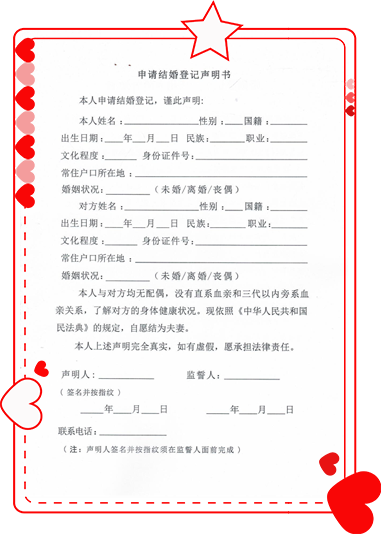 申请结婚登记声明书
本人申请结婚登记，谨此声明:
本人姓名：____________性别：___国籍：_____
出生日期：___年___月___日 民族：______职业：_____
文化程度：_____ 身份证件号：______________
常住户口所在地：______________
婚姻状况：_______（未婚/离婚/丧偶）
对方姓名：____________性别：___国籍：_____
出生日期：___年___月___日 民族：_____职业：_____
文化程度：_____ 身份证件号：______________
常住户口所在地：______________
婚姻状况：_______（未婚/离婚/丧偶）
本人与对方均无配偶，没有直系血亲和三代以内旁系血
亲关系，了解对方的身体健康状况。现依照《中华人民共和国
民法典》的规定，自愿结为夫妻。
本人上述声明完全真实，如有虚假，愿承担法律责任。
声明人：_________ 监誓人：_________
（签名并按指纹）
____年____月____日 ____年____月____日
联系电话：___________
（注：声明人签名并按指纹须在监誓人面前完成）